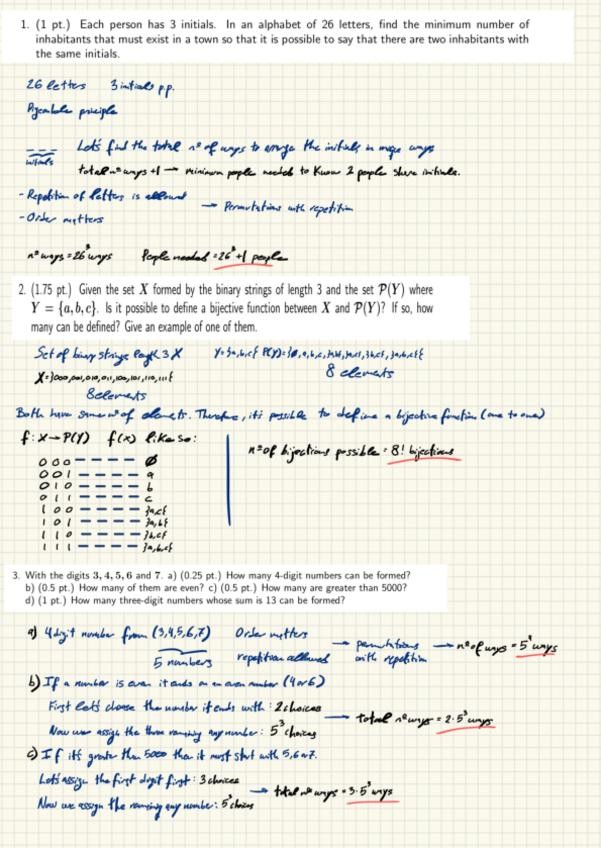 1. (1 pt.) Each person has 3 initials. In an alphabet of 26 letters, find the minimum number of
inhabitants that must exist in a town so that it is possible to say that there are two inhabitants with
the same initials.
26 letters 3 initials p.p.
Pigeonhole principle
_ _ _ Let's find the total nº of ways to arrange the initials in unique ways
initials
total nº ways +1 → minimum people needed to know 2 people share initials.
- Repetition of letters is allowed
→ Permutations with repetition
- Order matters
nº ways = 26³ ways People needed = 26³+1 people
2. (1.75 pt.) Given the set X formed by the binary strings of length 3 and the set P(Y) where
Y = {a, b, c}. Is it possible to define a bijective function between X and P(Y)? If so, how
many can be defined? Give an example of one of them.
Set of binary strings length 3 X Y={a,b,c} P(Y)={∅,a,b,c,{a,b},{a,c},{b,c},{a,b,c}}
8 elements
X={000,001,010,011,100,101,110,111}
8 elements
Both have same nº of elements. Therefore, it is possible to define a bijective function (one to one)
f: X→P(Y) f(x) like so:
nº of bijections possible = 8! bijections
000 ---- ∅
001 ---- a
010 ---- b
011 ---- c
100 ---- {a,c}
101 ---- {a,b}
110 ---- {b,c}
111 ---- {a,b,c}
3. With the digits 3, 4, 5, 6 and 7. a) (0.25 pt.) How many 4-digit numbers can be formed?
b) (0.5 pt.) How many of them are even? c) (0.5 pt.) How many are greater than 5000?
d) (1 pt.) How many three-digit numbers whose sum is 13 can be formed?
a) 4 digit number from (3,4,5,6,7) Order matters
5 numbers repetition allowed
→ permutations with repetition → nº of ways = 5⁴ ways
b) If a number is even it ends on an even number (4 or 6)
First let's choose the number it ends with: 2 choices
Now we assign the three remaining any number: 5³ choices
→ total nº ways = 2·5³ ways
c) If it's greater than 5000 then it must start with 5,6 or 7.
Let's assign the first digit first: 3 choices
Now we assign the remaining any number: 5³ choices
→ total nº ways = 3·5³ ways